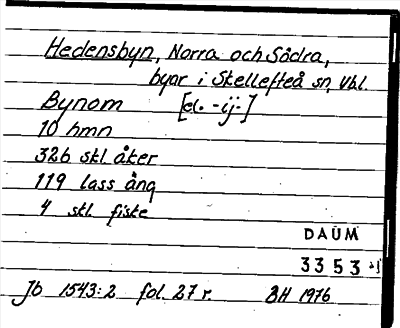 Hedensbyn, Norra och Södra,
byar i Skellefteå sn, Vbl.
Bynam [el. -ij-]
10 hmn
326 skl åker
119 lass äng
4 skl fiske
DAUM
3353
Jb 1543:2 fol. 27 r. BH 1976